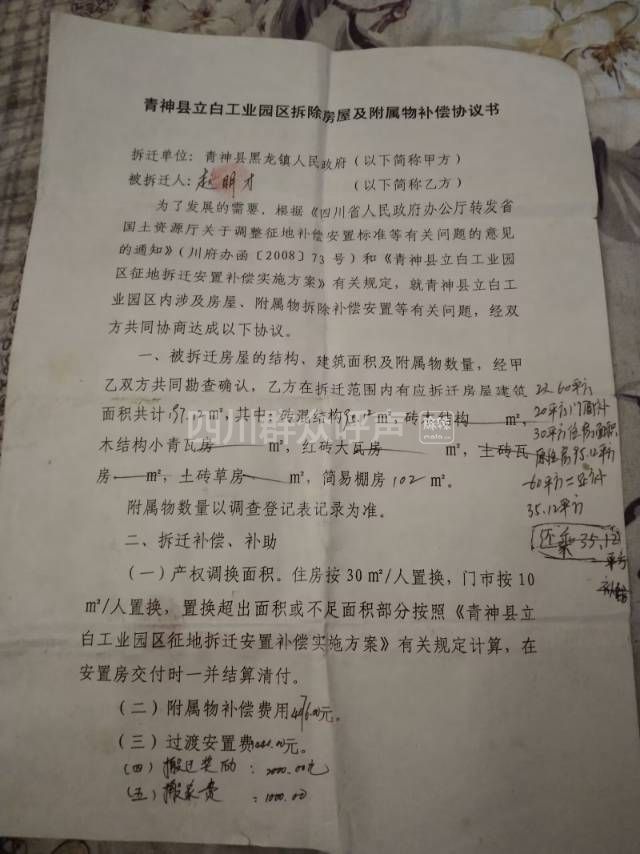 青神县立白工业园区拆除房屋及附属物补偿协议书
拆迁单位：青神县黑龙镇人民政府（以下简称甲方）
被拆迁人：赵明才（以下简称乙方）
为了发展的需要，根据《四川省人民政府办公厅转发省
国土资源厅关于调整征地补偿安置标准等有关问题的意见
的通知》（川府办函〔2008〕73号）和《青神县立白工业园
区征地拆迁安置补偿实施方案》有关规定，就青神县立白工
业园区内涉及房屋、附属物拆除补偿安置等有关问题，经双
方共同协商达成以下协议。
一、被拆迁房屋的结构、建筑面积及附属物数量，经甲
乙双方共同勘查确认，乙方在拆迁范围内有应拆迁房屋建筑
面积共计 ㎡，其中：砖混结构 ㎡，砖木结构 ㎡，
木结构小青瓦房 ㎡，红砖大瓦房 ㎡，土砖瓦
房 ㎡，土砖草房 ㎡，简易棚房102㎡。
附属物数量以调查登记表记录为准。
二、拆迁补偿、补助
（一）产权调换面积。住房按30㎡/人置换，门市按10
㎡/人置换，置换超出面积或不足面积部分按照《青神县立
白工业园区征地拆迁安置补偿实施方案》有关规定计算，在
安置房交付时一并结算清付。
（二）附属物补偿费用 元。
（三）过渡安置费 元。
（四）搬迁奖励：2000.00元
（五）搬家费：1000.00
60平方
20平方门面
30平方住房面积
95.12平方
60平方
35.12平方
还乘35.12
平方
四川群众呼声
麻辣
mala.cn